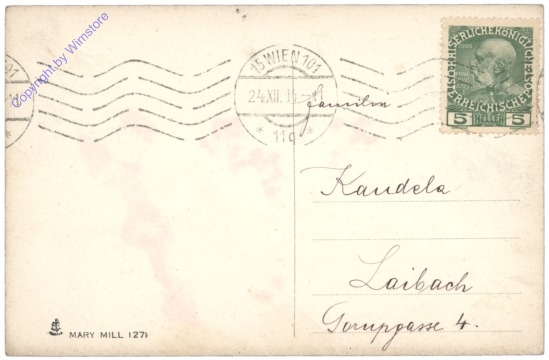 Copyright by Wimstore
15 WIEN 101
24.XII.
11q
KAISERLICHE KÖNIGLICHE
ÖSTERREICHISCHE POST
5 HELLER 5
Familie
Kandela
Laibach
Gorupgasse 4.
MARY MILL 127